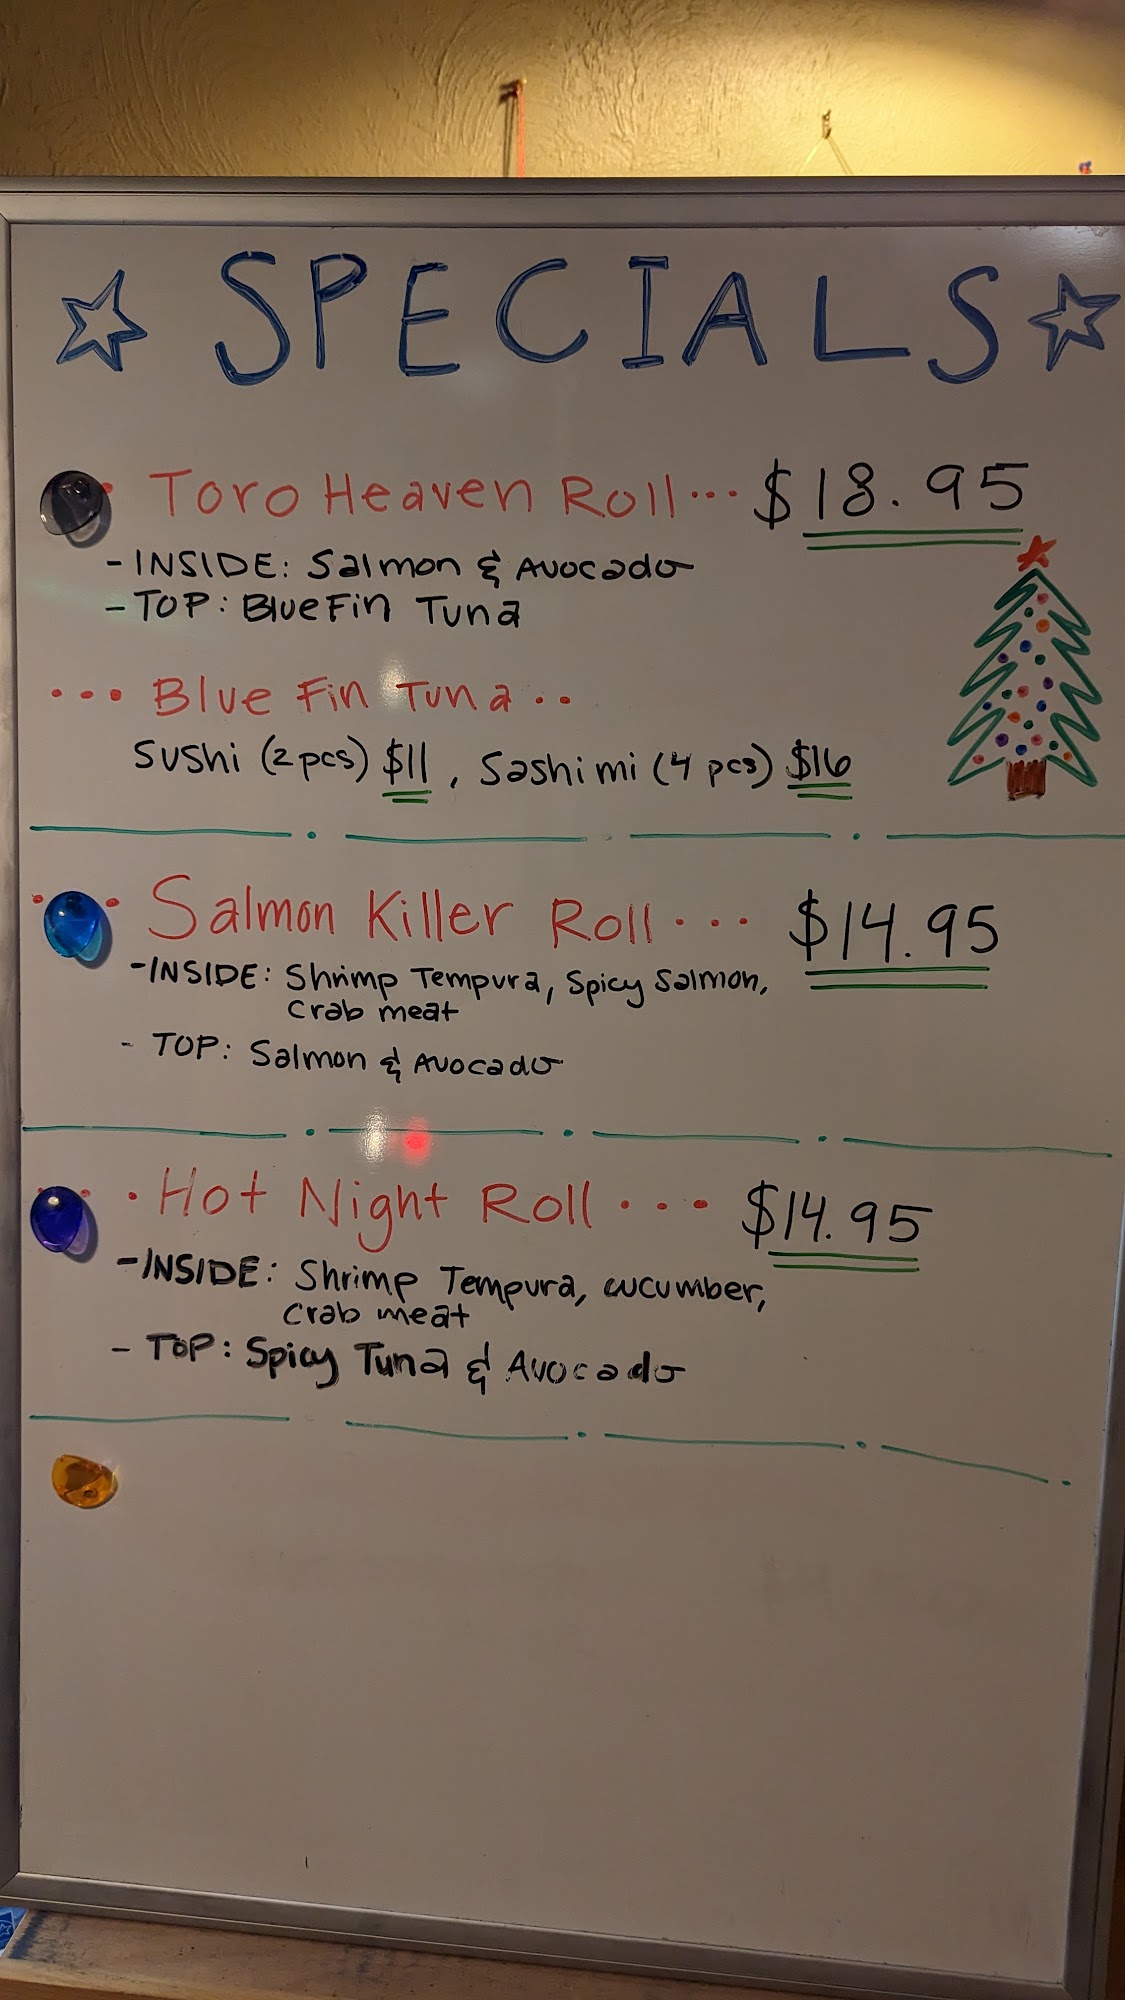 SPECIALS
Toro Heaven Roll... $18.95
- INSIDE: Salmon & Avocado
- TOP: BlueFin Tuna
... Blue Fin Tuna..
Sushi (2 pcs) $11, Sashimi (4 pcs) $16
Salmon Killer Roll... $14.95
- INSIDE: Shrimp Tempura, Spicy Salmon,
Crab meat
- TOP: Salmon & Avocado
Hot Night Roll... $14.95
- INSIDE: Shrimp Tempura, cucumber,
Crab meat
- TOP: Spicy Tuna & Avocado